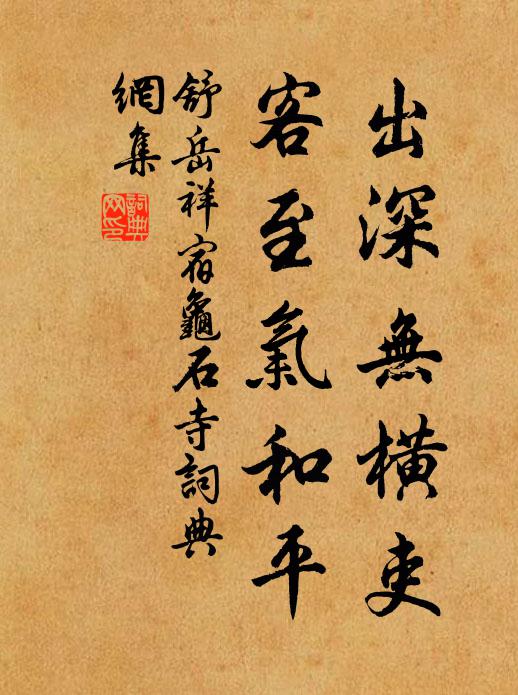 出深無橫吏
客至氣和平
舒岳祥宿龜石寺詞典
網集
詞典
网印